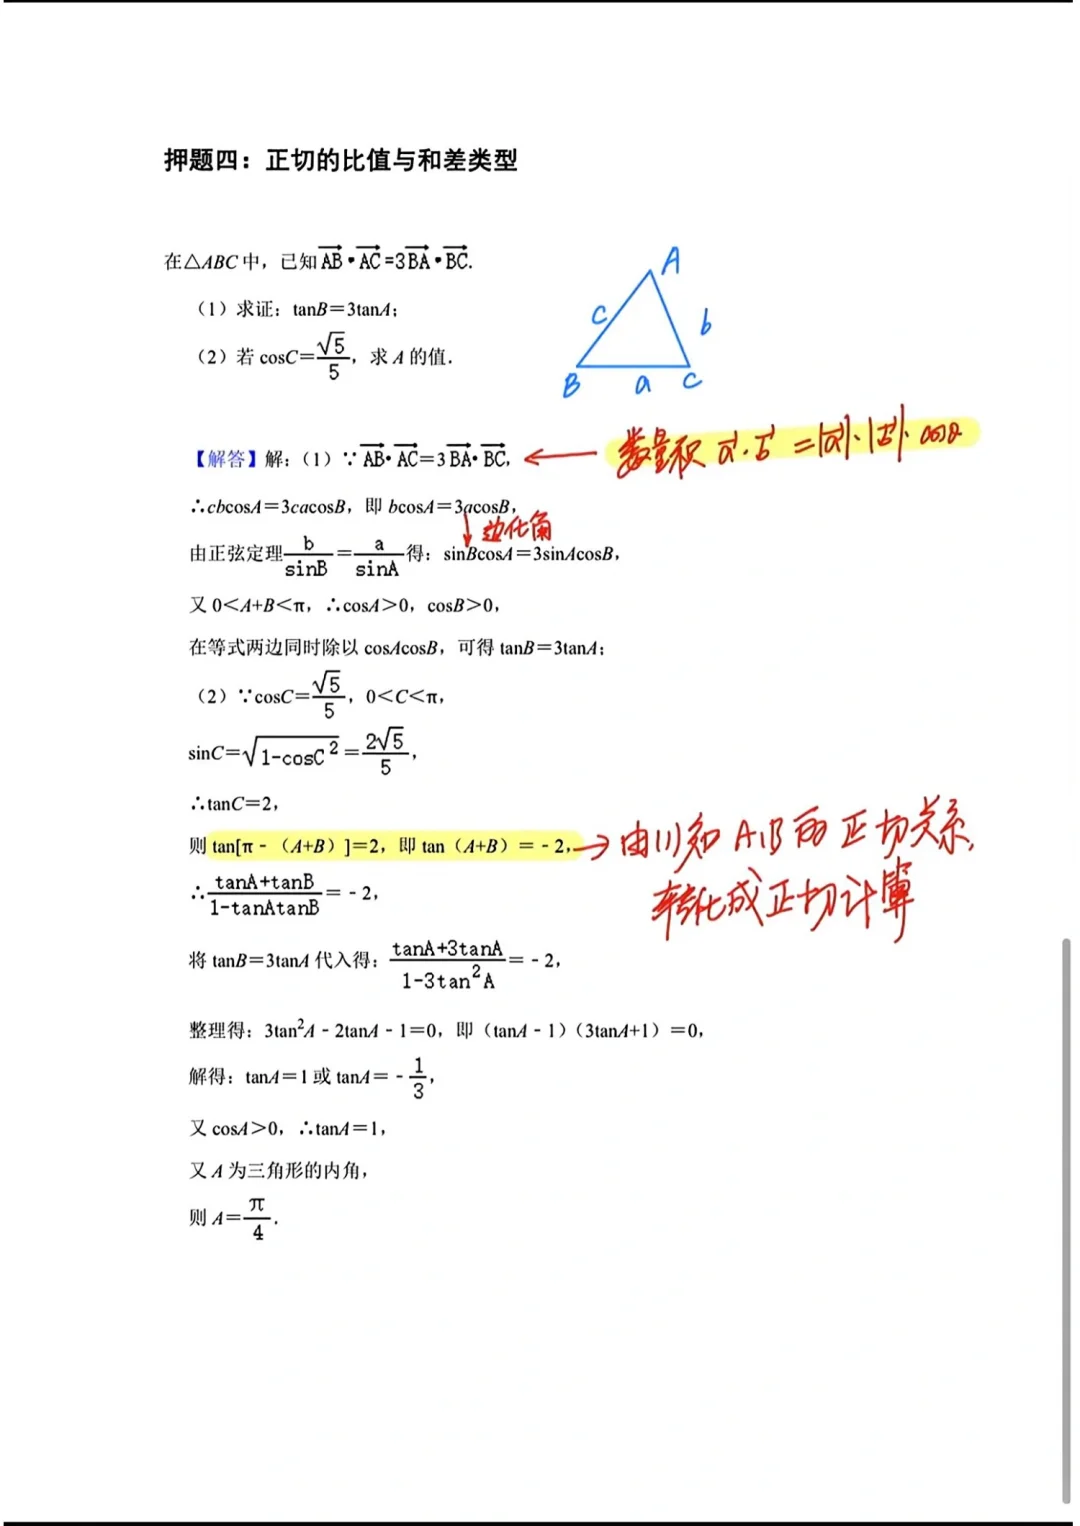 押题四：正切的比值与和差类型
在△ABC中，已知AB•AC=3BA•BC.
A
c
b
B
a
C
（1）求证：tanB＝3tanA；
（2）若 cosC＝√5/5，求 A 的值．
【解答】解：（1）∵AB•AC＝3BA•BC，
← 数量积 a·b =|a|·|b|·cosθ
∴cbcosA＝3cacosB，即 bcosA＝3acosB，
↓边化角
由正弦定理b/sinB＝a/sinA得：sinBcosA＝3sinAcosB，
又 0＜A+B＜π，∴cosA＞0，cosB＞0，
在等式两边同时除以 cosAcosB，可得 tanB＝3tanA；
（2）∵cosC＝√5/5，0＜C＜π，
sinC＝√(1-cosC²)＝2√5/5，
∴tanC＝2，
则 tan[π﹣（A+B）]＝2，即 tan（A+B）＝﹣2，
→ 由(1)知 A,B的正切关系,
转化成正切计算
∴tanA+tanB/1-tanAtanB＝﹣2，
将 tanB＝3tanA 代入得：tanA+3tanA/1-3tan²A＝﹣2，
整理得：3tan²A﹣2tanA﹣1＝0，即（tanA﹣1）（3tanA+1）＝0，
解得：tanA＝1 或 tanA＝﹣1/3，
又 cosA＞0，∴tanA＝1，
又 A 为三角形的内角，
则 A＝π/4．